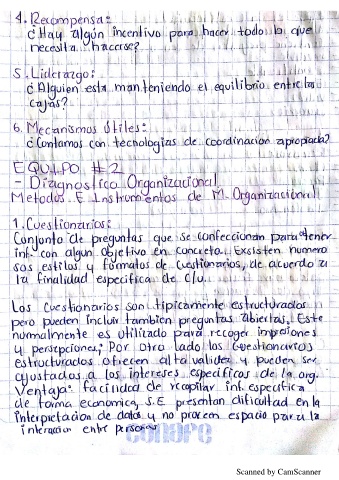 4. Recompensa:
¿Hay algún incentivo para hacer todo lo que
necesita hacerse?
5. Liderazgo:
¿Alguien esta manteniendo el equilibrio entre las
cajas?
6. Mecanismos Utiles:
¿Contamos con tecnologias de coordinación apropiada?
EQUIPO #2
- Diagnostico Organizacional
Metodos E Instrumentos de M. Organizacional
1. Cuestionarios:
Conjunto de preguntas que se confeccionan para obtener
inf. con algun objetivo en concreto. Exsisten numero
sos estilos y formatos de cuestionarios, de acuerdo a
la finalidad especifica de c/u.
Los cuestionarios son tipicamente estructurados
pero pueden incluir tambien preguntas abiertas. Este
normalmente es utilizado para recoger impresiones
y persepciones; Por otro lado los cuestionarios
estructurados ofrecen alta validez y pueden ser
ajustados a los intereses especificos de la org.
Ventaja: facilidad de recopilar inf. especifica
de forma economica, S.E presentan dificultad en la
interpretacion de datos y no proveen espacio para la
interaccion entre personas
conare
Scanned by CamScanner